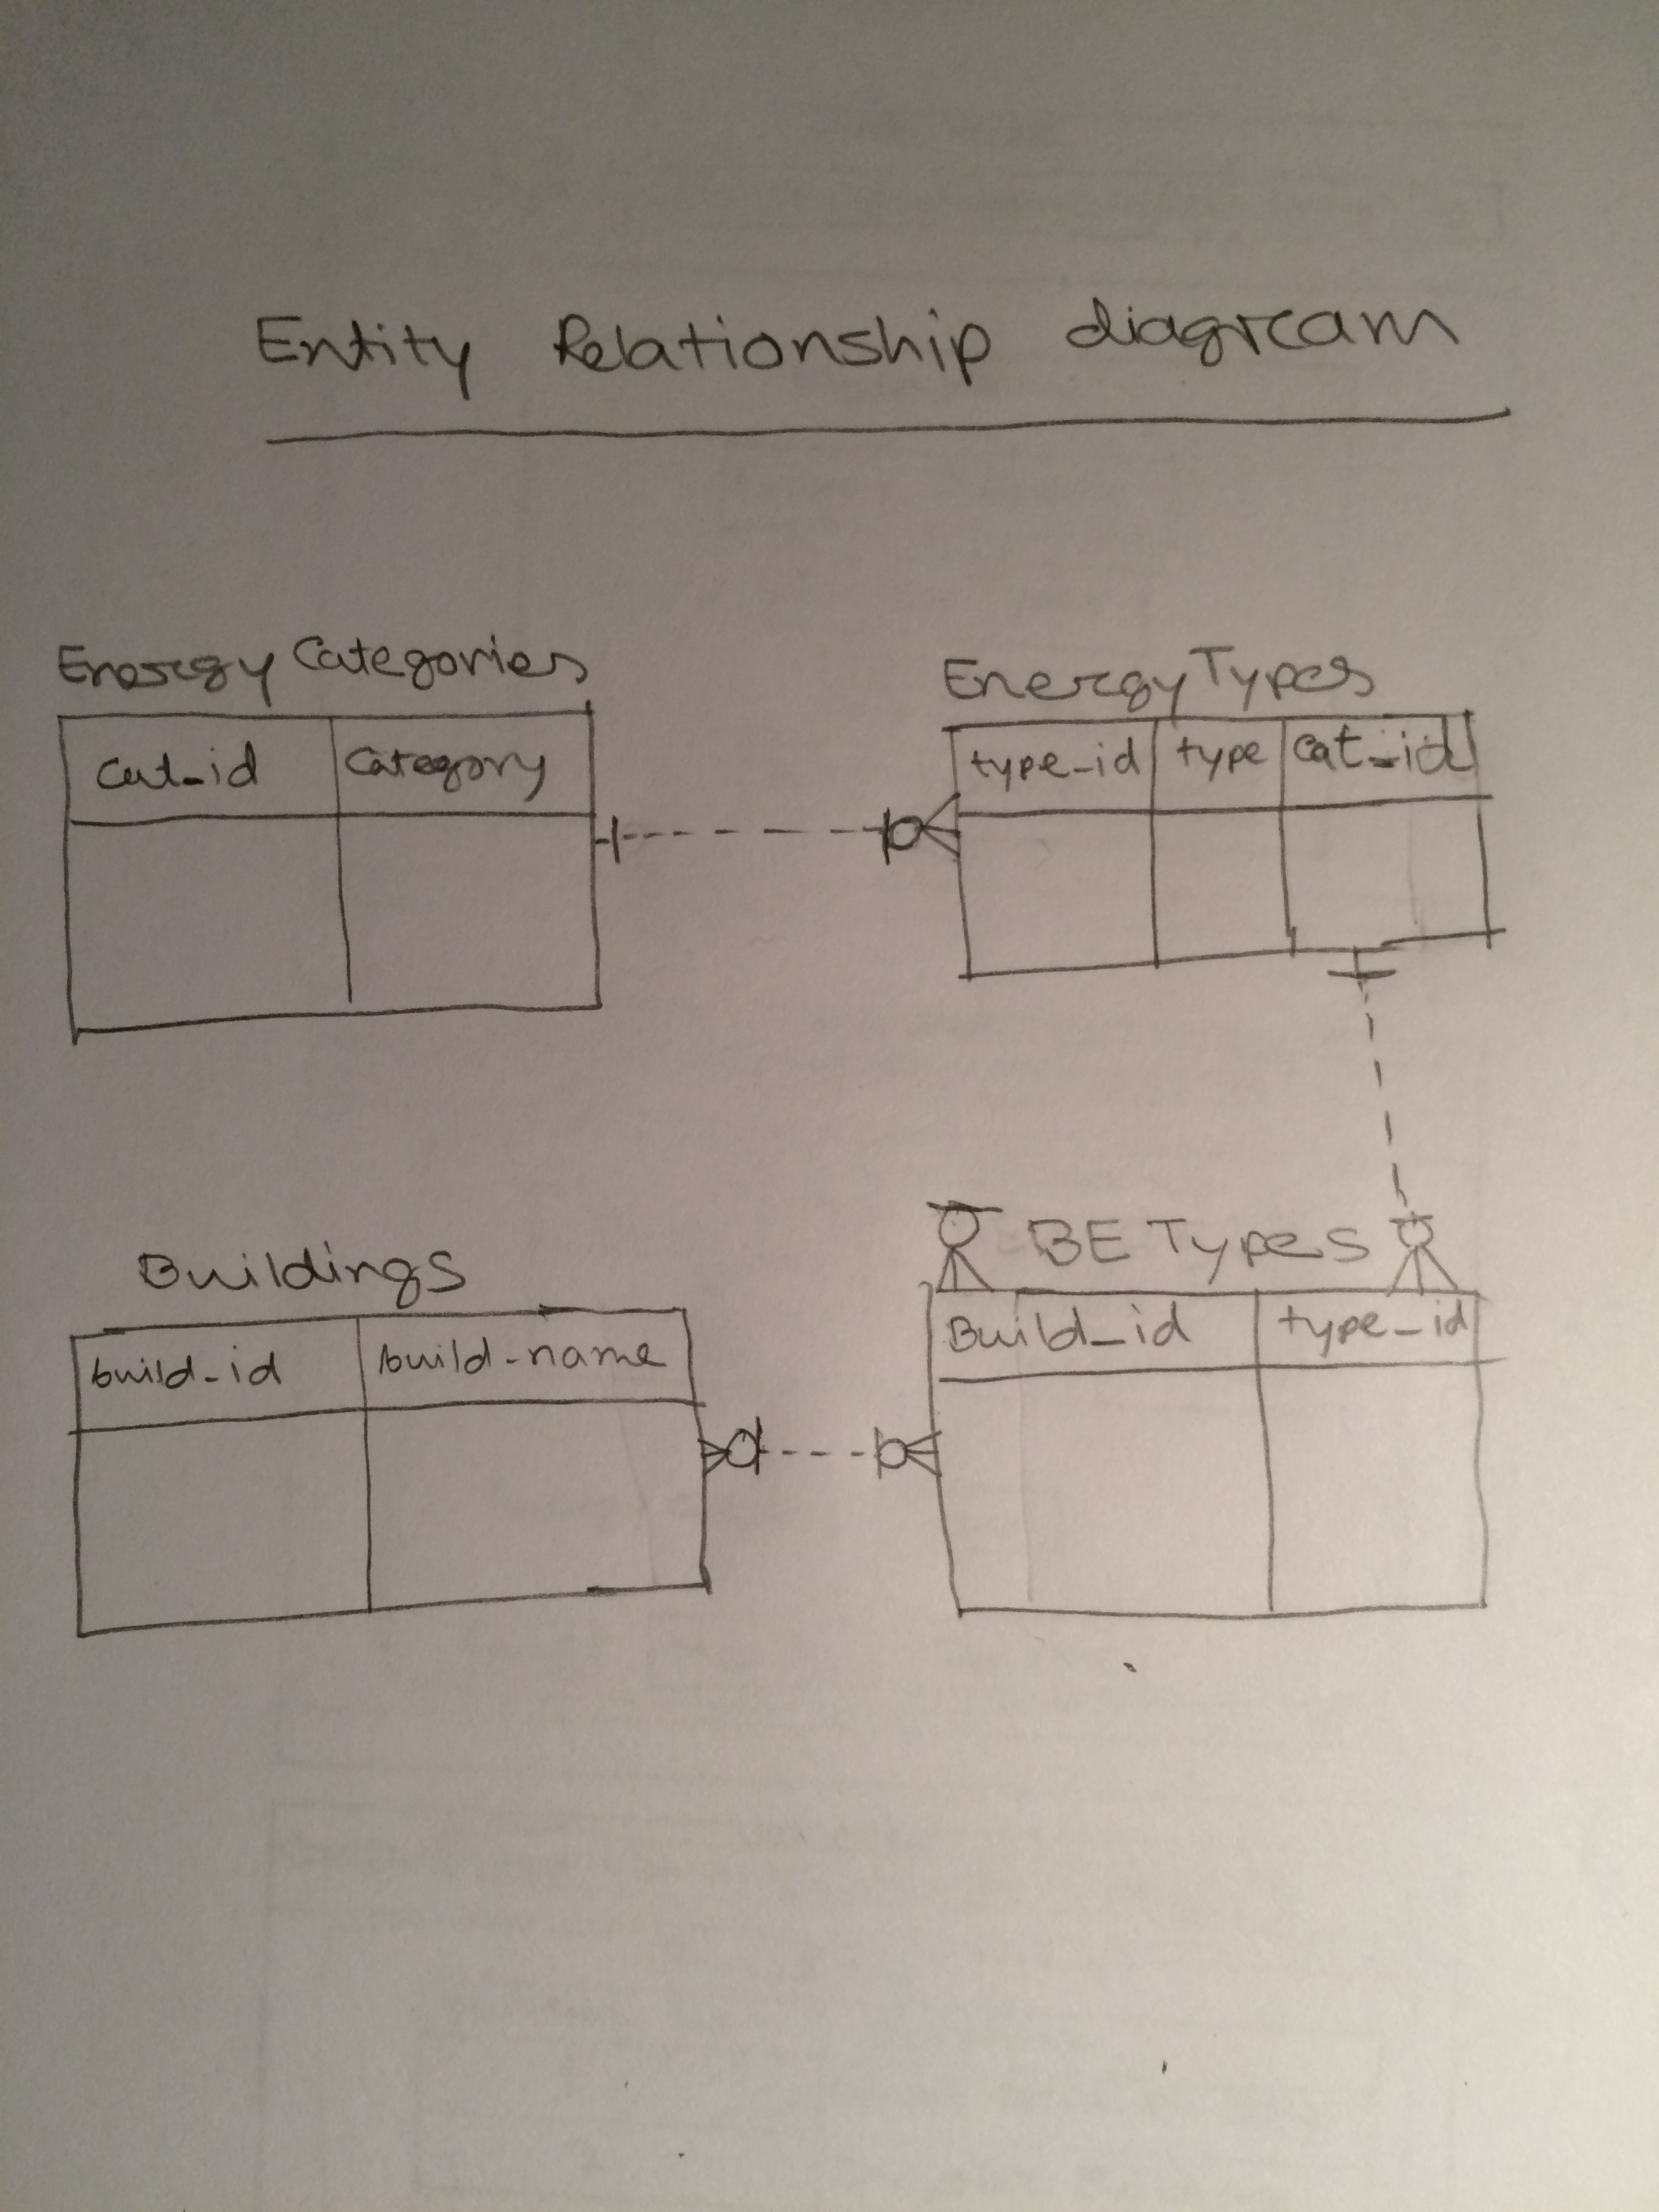 Entity Relationship diagram
Energy Categories
Cat_id Category
Energy Types
type_id type Cat_id
Buildings
build_id build_name
BE Types
Build_id type_id